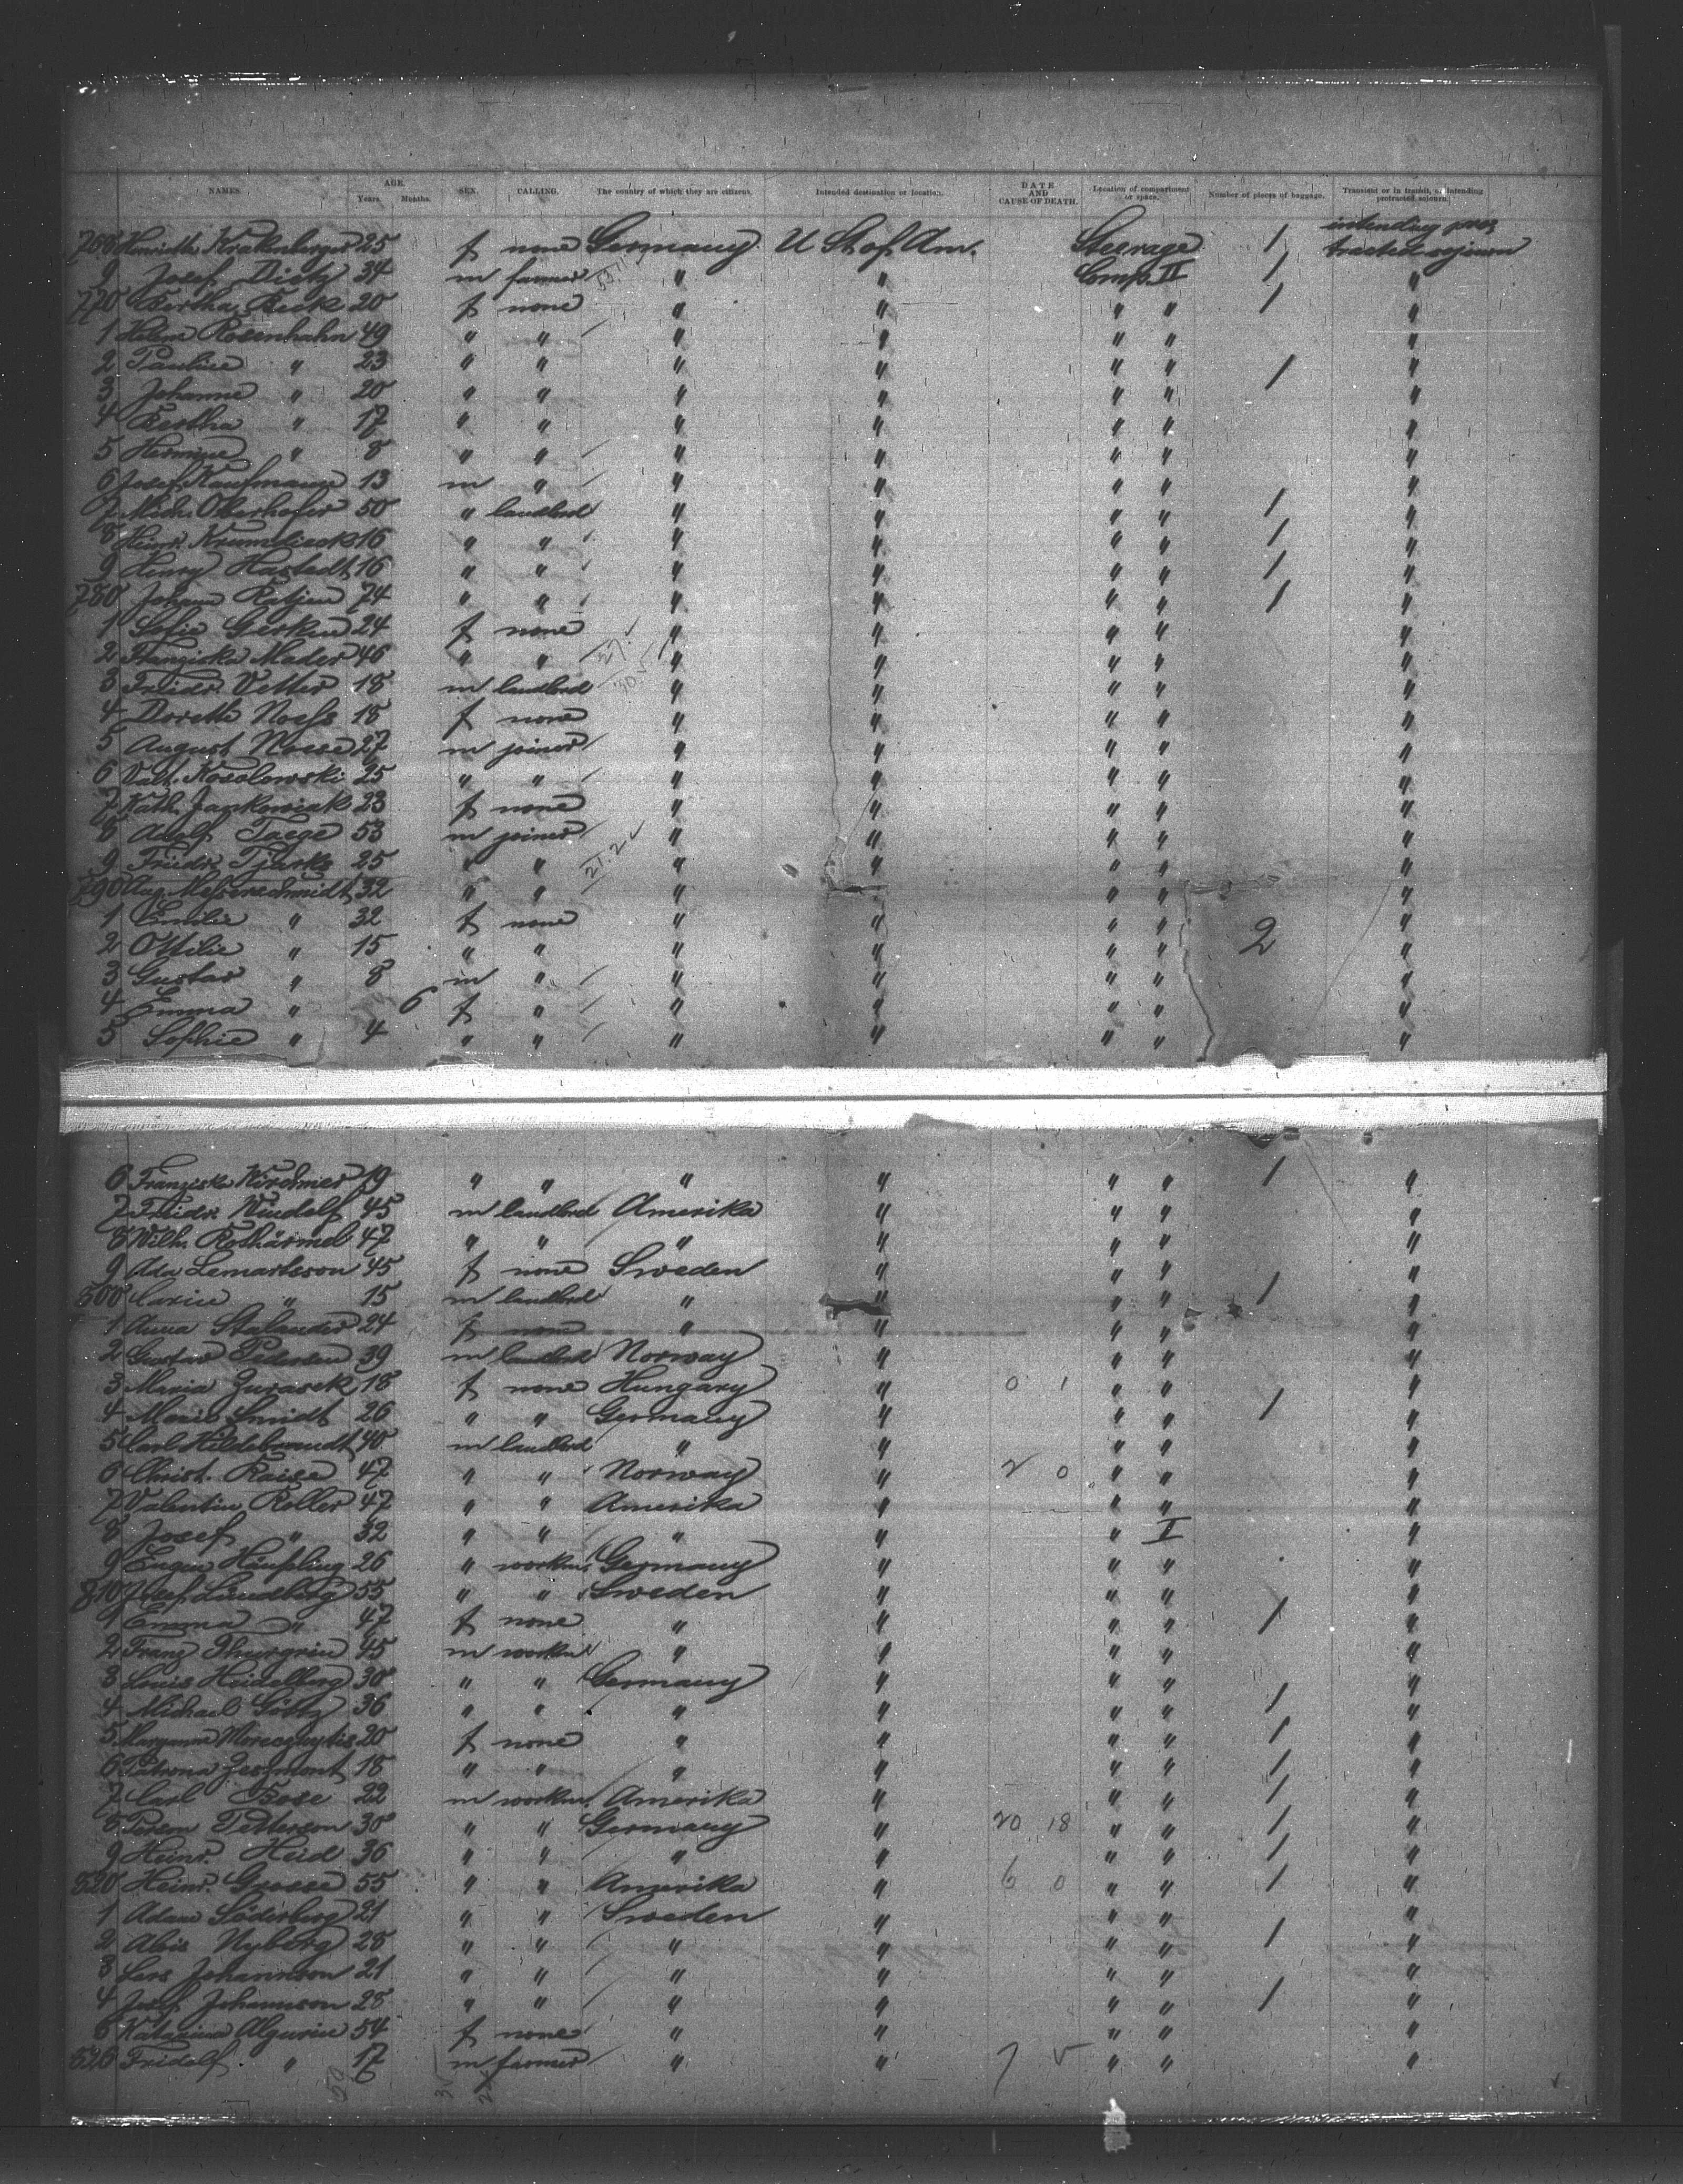 NAMES. AGE. Years. Months. SEX. CALLING. The country of which they are citizens. Intended destination or location. DATE AND CAUSE OF DEATH. Location of compartment or space. Number of pieces of baggage. Transient or in transit, or intending protracted sojourn.
768 Henriette Krakenberger 25 f none Germany U St of Am. Steerage 1 intending pro tracted sojourn
9 Josef Dietz 34 m farmer " " Comp. II 1 "
770 Bertha Beck 20 f none " " " " 1 "
1 Helene Rosenhahn 49 " " " " " " "
2 Pauline " 23 " " " " " " 1 "
3 Johanne " 20 " " " " " " "
4 Bertha " 17 " " " " " " "
5 Hermine " 8 " " " " " " "
6 Josef Kaufmann 13 m " " " " " "
7 Mich. Oberhofer 50 " landlord " " " " 1 "
8 Heinr. Krumdieck 16 " " " " " " 1 "
9 Henry Hastedt 16 " " " " " " 1 "
780 Johann Ratjen 74 " " " " " " 1 "
1 Sofie Gerken 24 f none " " " " "
2 Franziska Mader 46 " " " " " " "
3 Friedr. Vetter 18 m landlord " " " " "
4 Doreth Noess 18 f none " " " " "
5 August Noese 27 m joiner " " " " "
6 Valt. Kosolowski 25 " " " " " " "
7 Kath. Jankowiak 23 f none " " " " "
8 Adolf Taege 53 m joiner " " " " "
9 Friedr. Tjarks 25 " " 21.2 " " " " "
790 Aug. Messerschmidt 32 " " " " " " "
1 Emilie " 32 f none " " " " 2 "
2 Ottilie " 15 " " " " " " "
3 Gustav " 8 m " " " " " "
4 Emma " 6 f " " " " " "
5 Sophie " 4 " " " " " " "
6 Franziska Kirchmer 19 " " " " " " 1 "
7 Friedr. Windolf 45 m landlord Amerika " " " "
8 Wilh. Rothärmel 47 " " " " " " "
9 Ada Lemartsson 45 f none Sweden " " " "
800 Carin " 15 m landlord " " " " 1 "
1 Anna 24 f none " " " " "
2 Gustav Pedersen 39 m landlord Norway " " " "
3 Maria Zurasek 18 f none Hungary " 0 1 " " "
4 Marie Smidt 26 " " Germany " " " 1 "
5 Carl Hildebrandt 40 m landlord " " " " "
6 Christ. Raise 47 " " Norway " 2 0 " " "
7 Valentin Roller 47 " " Amerika " " " "
8 Josef " 32 " " " " " I "
9 Eugen Häussling 26 " workm. Germany " " " "
810 Josef Lundberg 55 " " Sweden " " " "
1 Emma " 47 f none " " " " 1 "
2 Franz 45 m workm " " " " "
3 Louis Heidelberg 30 " " Germany " " " "
4 Michael Götz 36 " " " " " " 1 "
5 Maryanne 20 f none " " " " 1 "
6 Petrona 18 " " " " " " 1 "
7 Carl Bose 22 m workm. Amerika " " " 1 "
8 Person Petterson 30 " " Germany " 20 18 " " 1 "
9 Heinr. Heid 36 " " " " " " 1 "
820 Heinr. Grosse 55 " " Amerika " 6 0 " " 1 "
1 Adam Söderberg 21 " " Sweden " " " "
2 Alois Nyberg 28 " " " " " " 1 "
3 Lars Johannson 21 " " " " " " "
4 Josef Johannson 28 " " " " " " 1 "
5 Katarina Algurin 54 f none " " " " "
826 Fridolf " 17 m farmer " " 7 5 " " "